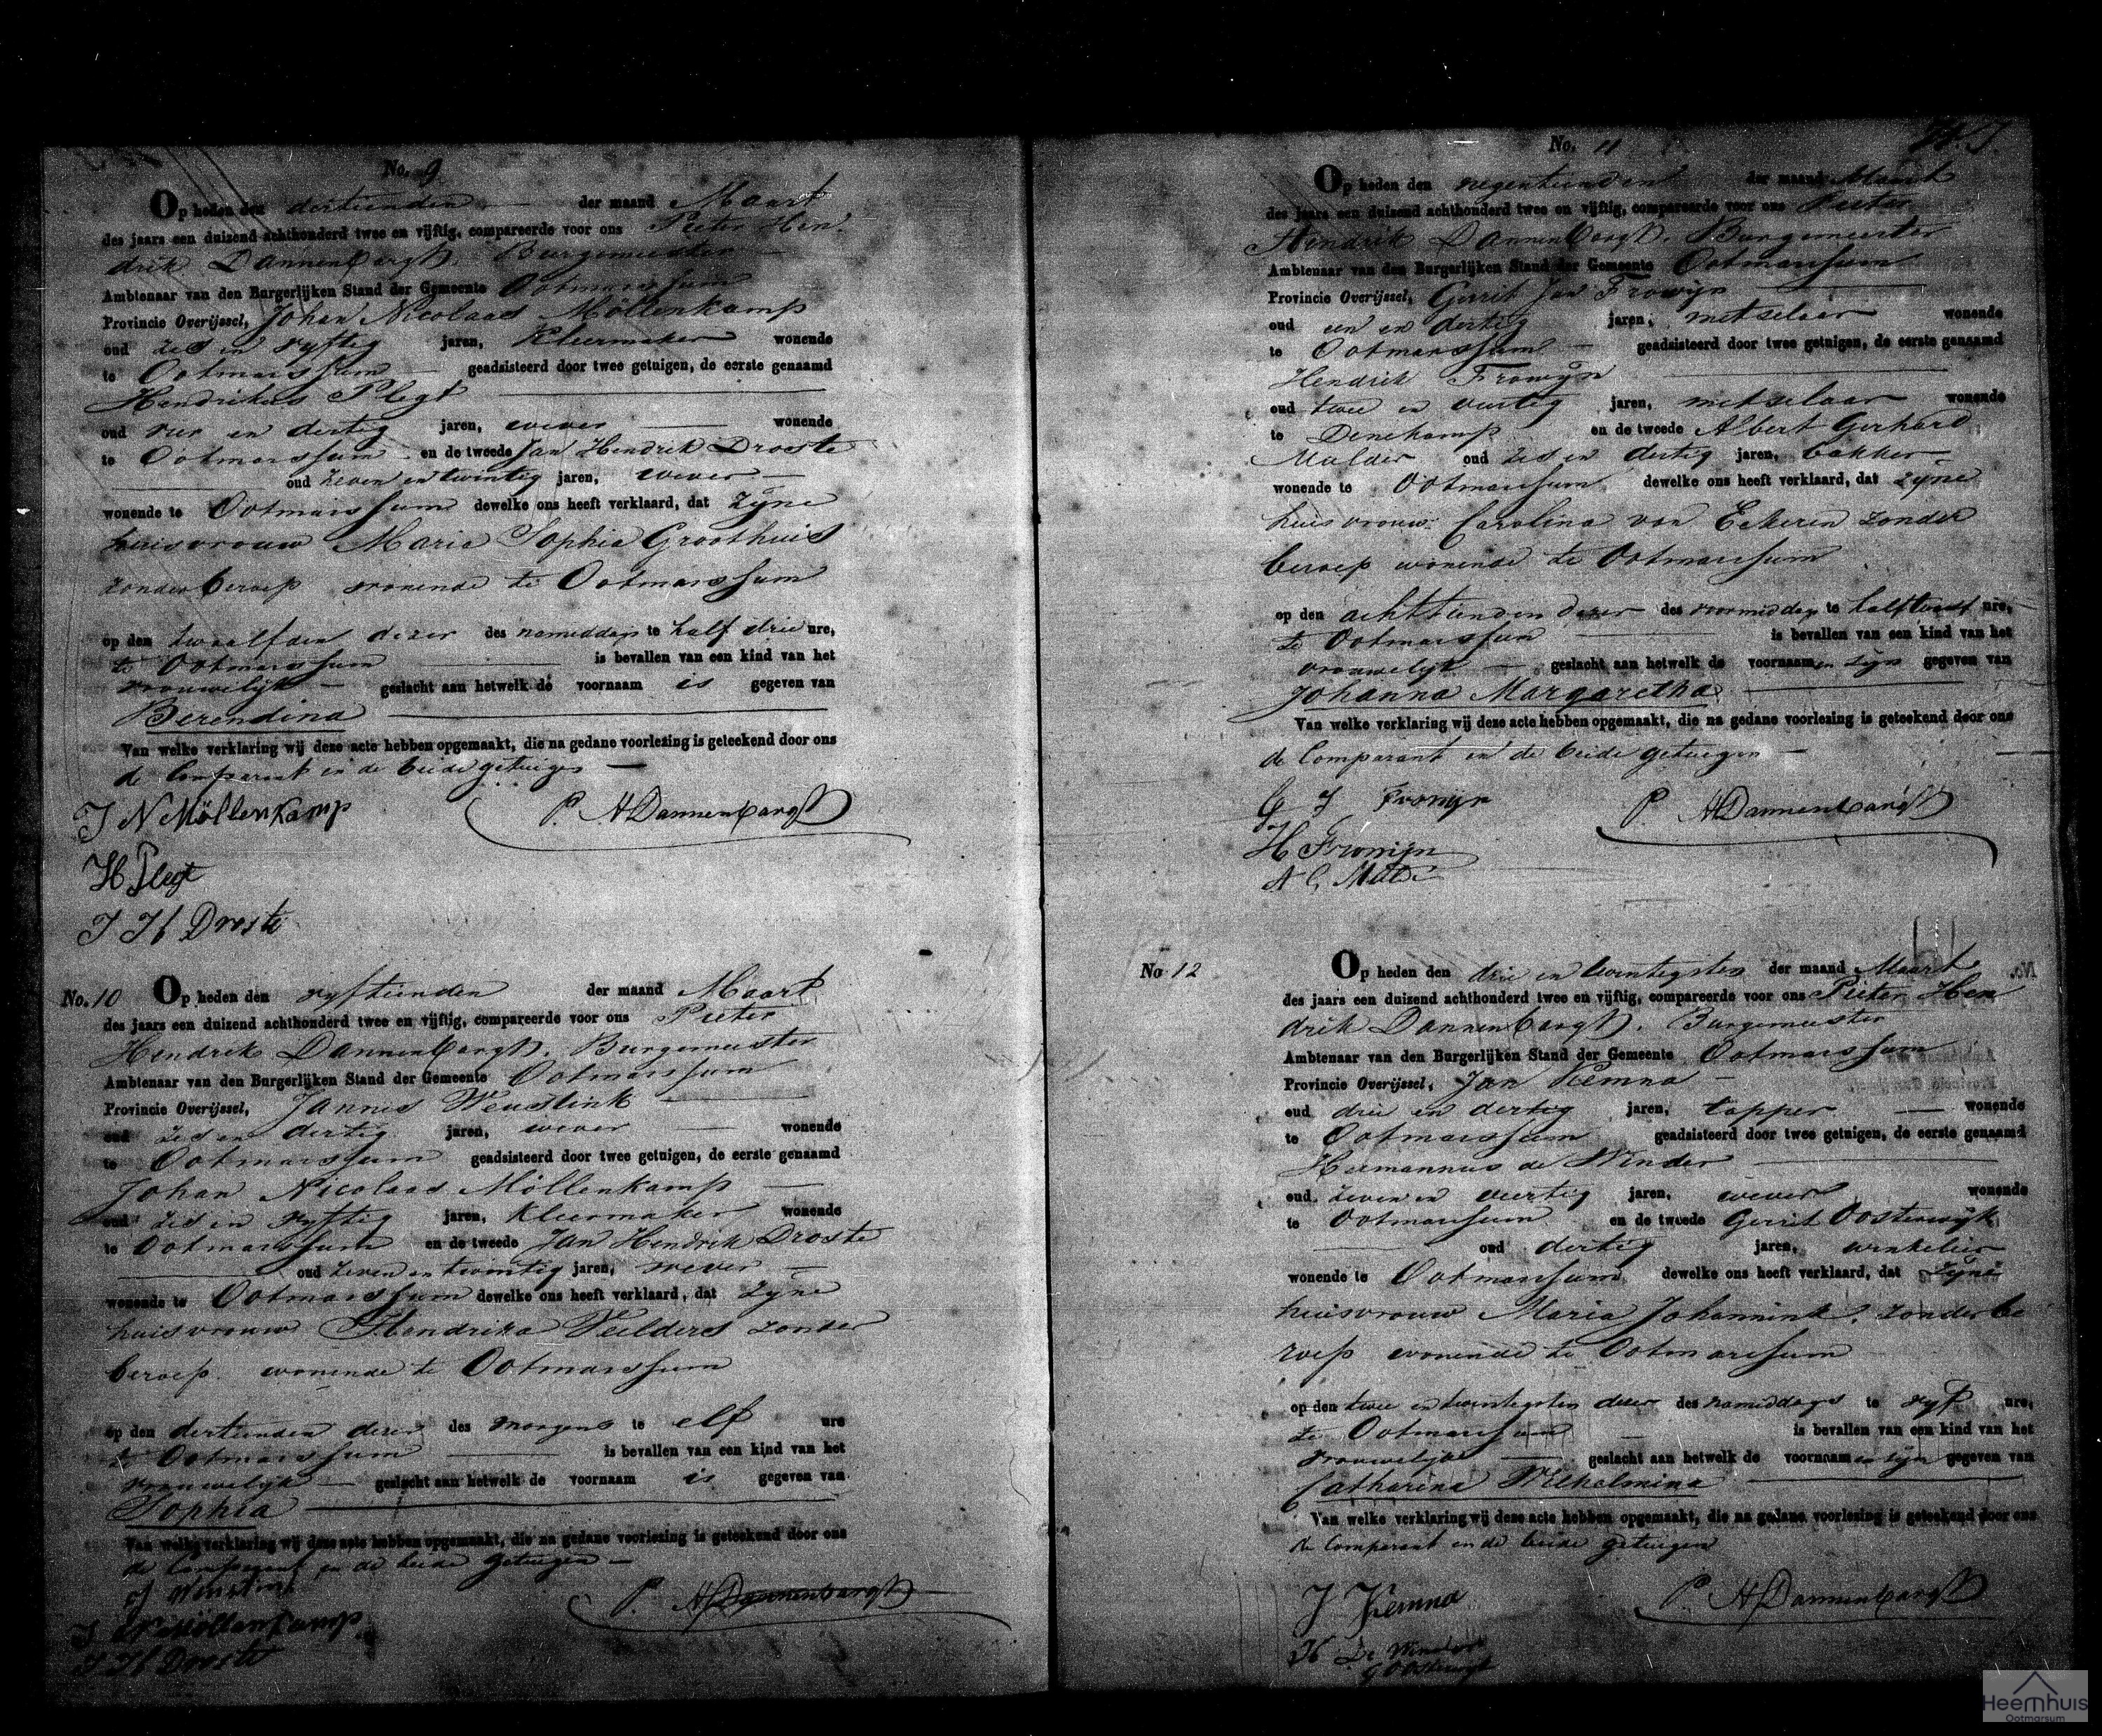 No. 9
Op heden den dertienden der maand Maart
des jaars een duizend achthonderd twee en vijftig, compareerde voor ons Pieter Hen-
drik Dannenbargh, Burgemeester
Ambtenaar van den Burgerlijken Stand der Gemeente Ootmarssum
Provincie Overijssel, Johan Nicolaas Möllenkamp
oud zes en vyftig jaren, Kleermaker wonende
te Ootmarssum geadsisteerd door twee getuigen, de eerste genaamd
Hendrikus Plegt
oud vier en dertig jaren, wever wonende
te Ootmarssum en de tweede Jan Hendrik Droste
oud zeven en twintig jaren, wever
wonende te Ootmarssum dewelke ons heeft verklaard, dat zyne
huisvrouw Maria Sophia Groothuis
zonder beroep wonende te Ootmarssum
op den twaalfden dezer des namiddags te half drie ure,
te Ootmarssum is bevallen van een kind van het
vrouwelijk geslacht aan hetwelk de voornaam is gegeven van
Berendina
Van welke verklaring wij deze acte hebben opgemaakt, die na gedane voorlezing is geteekend door ons
de Comparant en de beide getuigen
J N Möllenkamp
P. H Dannenbargh
H Plegt
J H Droste
No. 10 Op heden den vyftienden der maand Maart
des jaars een duizend achthonderd twee en vijftig, compareerde voor ons Pieter
Hendrik Dannenbargh, Burgemeester
Ambtenaar van den Burgerlijken Stand der Gemeente Ootmarssum
Provincie Overijssel, Jannes Weustink
oud zes en dertig jaren, wever wonende
te Ootmarssum geadsisteerd door twee getuigen, de eerste genaamd
Johan Nicolaas Möllenkamp
oud zes en vyftig jaren, Kleermaker wonende
te Ootmarssum en de tweede Jan Hendrik Droste
oud zeven en twintig jaren, wever
wonende te Ootmarssum dewelke ons heeft verklaard, dat zyne
huisvrouw Hendrika Velders zonder
beroep wonende te Ootmarssum
op den dertienden dezer des morgens te elf ure
te Ootmarssum is bevallen van een kind van het
vrouwelijk geslacht aan hetwelk de voornaam is gegeven van
Sophia
Van welke verklaring wij deze acte hebben opgemaakt, die na gedane voorlezing is geteekend door ons
de Comparant en de beide getuigen
P. H Dannenbargh
J N Möllenkamp
J H Droste
No. 11
Op heden den negentienden der maand Maart
des jaars een duizend achthonderd twee en vijftig, compareerde voor ons Pieter
Hendrik Dannenbargh, Burgemeester
Ambtenaar van den Burgerlijken Stand der Gemeente Ootmarssum
Provincie Overijssel, Gerrit Jan Frowijn
oud een en dertig jaren, metselaar wonende
te Ootmarssum geadsisteerd door twee getuigen, de eerste genaamd
Hendrik Frowijn
oud twee en veertig jaren, metselaar wonende
te Denekamp en de tweede Albert Gerhard
Mulder oud zes en dertig jaren, bakker
wonende te Ootmarssum dewelke ons heeft verklaard, dat zyne
huisvrouw Carolina van Eckeren zonder
beroep wonende te Ootmarssum
op den achttienden dezer des voormiddags te half ure,
te Ootmarssum is bevallen van een kind van het
vrouwelijk geslacht aan hetwelk de voornaamen zyn gegeven van
Johanna Margaretha
Van welke verklaring wij deze acte hebben opgemaakt, die na gedane voorlezing is geteekend door ons
de Comparant en de beide getuigen
G J Frowijn
P. H Dannenbargh
H Frowijn
No 12 Op heden den drie en twintigsten der maand Maart
des jaars een duizend achthonderd twee en vijftig, compareerde voor ons Pieter Hen
drik Dannenbargh, Burgemeester
Ambtenaar van den Burgerlijken Stand der Gemeente Ootmarssum
Provincie Overijssel, Jan Kemna
oud drie en dertig jaren, tapper wonende
te Ootmarssum geadsisteerd door twee getuigen, de eerste genaamd
Hermannus de Winder
oud zeven en veertig jaren, wever wonende
te Ootmarssum en de tweede Gerrit Oosterwijk
oud dertig jaren, winkelier
wonende te Ootmarssum dewelke ons heeft verklaard, dat zyne
huisvrouw Maria Johannink, zonder be
roep wonende te Ootmarssum
op den twee en twintigsten dezer des namiddags te vyf ure,
te Ootmarssum is bevallen van een kind van het
vrouwelyk geslacht aan hetwelk de voornaamen zyn gegeven van
Catharina Wilhelmina
Van welke verklaring wij deze acte hebben opgemaakt, die na gedane voorlezing is geteekend door ons
de Comparant en de beide getuigen
J Kemna
P. H Dannenbargh
H De Winder
G Oosterwijk
Heemhuis
Ootmarsum